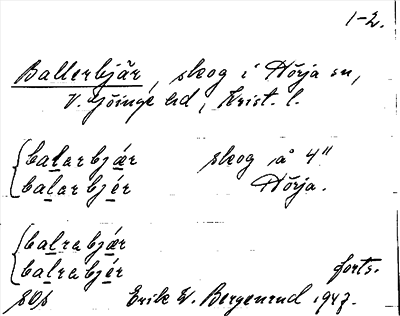 1-2.
Ballerbjär, skog i Hörja sn,
V. Göinge hd, Krist. l.
balarbjær skog å 4"
balarbjér Hörja.
balrabjær
balrabjér forts.
Erik W. Bergenrud 1947.